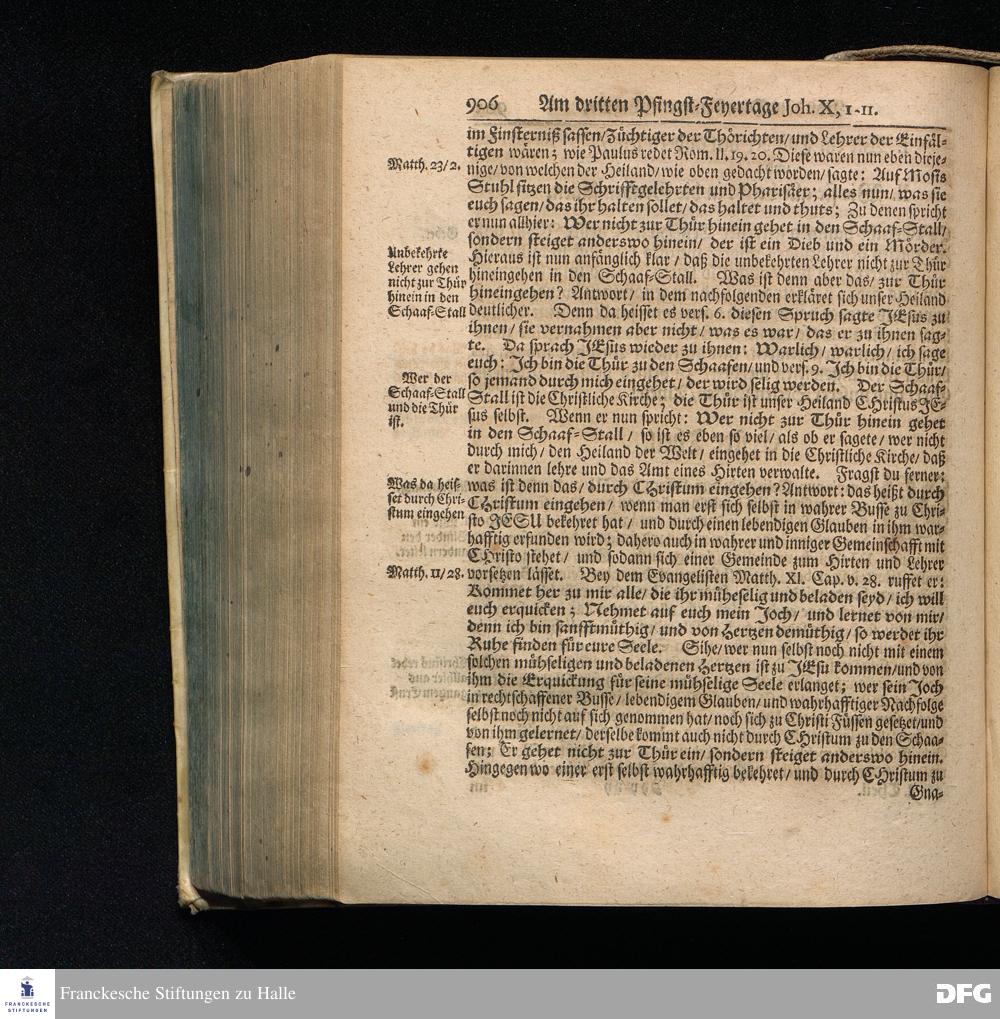 906 Am dritten Pfingst-Feyertage Joh. X, 1-11.
im Finsterniß sassen/Züchtiger der Thörichten/und Lehrer der Einfäl-
tigen wären; wie Paulus redet Rom. II. 19. 20. Diese waren nun eben dieje-
Matth. 23/2.
nige/von welchen der Heiland/wie oben gedacht worden/sagte: Auf Mosis
Stuhl sitzen die Schrifftgelehrten und Pharisäer; alles nun/ was sie
euch sagen/das ihr halten sollet/das haltet und thuts; Zu denen spricht
er nun allhier: Wer nicht zur Thür hinein gehet in den Schaaf-Stall/
sondern steiget anderswo hinein/ der ist ein Dieb und ein Mörder.
Unbekehrte
Lehrer gehen
nicht zur Thür
hinein in den
Schaaf-Stall
Hieraus ist nun anfänglich klar/ daß die unbekehrten Lehrer nicht zur Thür
hineingehen in den Schaaf-Stall. Was ist denn aber das/ zur Thür
hineingehen? Antwort/ in dem nachfolgenden erkläret sich unser Heiland
deutlicher. Denn da heisset es vers. 6. diesen Spruch sagte JEsus zu
ihnen/ sie vernahmen aber nicht/ was es war/ das er zu ihnen sag-
te. Da sprach JEsus wieder zu ihnen: Warlich/ warlich/ ich sage
euch: Ich bin die Thür zu den Schaafen/ und vers. 9. Ich bin die Thür/
Wer der
Schaaf-Stall
und die Thür
ist.
so jemand durch mich eingehet/ der wird selig werden. Der Schaaf-
Stall ist die Christliche Kirche; die Thür ist unser Heiland CHristus JE-
sus selbst. Wenn er nun spricht: Wer nicht zur Thür hinein gehet
in den Schaaf-Stall/ so ist es eben so viel/ als ob er sagete/ wer nicht
durch mich/ den Heiland der Welt/ eingehet in die Christliche Kirche/ daß
er darinnen lehre und das Amt eines Hirten verwalte. Fragst du ferner:
Was da heis-
set durch Chri-
stum eingehen
was ist denn das/ durch CHristum eingehen? Antwort: das heißt durch
CHristum eingehen/ wenn man erst sich selbst in wahrer Busse zu Chri-
sto JESU bekehret hat/ und durch einen lebendigen Glauben in ihm war-
hafftig erfunden wird; dahero auch in wahrer und inniger Gemeinschafft mit
CHristo stehet/ und sodann sich einer Gemeinde zum Hirten und Lehrer
Matth. 11/28.
vorsetzen lässet. Bey dem Evangelisten Matth. XI. Cap. v. 28. ruffet er:
Kommet her zu mir alle/ die ihr müheselig und beladen seyd/ ich will
euch erquicken; Nehmet auf euch mein Joch/ und lernet von mir/
denn ich bin sanfftmüthig/ und von Hertzen demüthig/ so werdet ihr
Ruhe finden für eure Seele. Sihe/ wer nun selbst noch nicht mit einem
solchen mühseligen und beladenen Hertzen ist zu JEsu kommen/und von
ihm die Erquickung für seine mühselige Seele erlanget; wer sein Joch
in rechtschaffener Busse/ lebendigem Glauben/ und wahrhafftiger Nachfolge
selbst noch nicht auf sich genommen hat/ noch sich zu Christi Füssen gesetzet/und
von ihm gelernet/ derselbe kommt auch nicht durch CHristum zu den Schaa-
fen; Er gehet nicht zur Thür ein/ sondern steiget anderswo hinein.
Hingegen wo einer erst selbst wahrhafftig bekehret/ und durch CHristum zu
Gna-
FRANCKESCHE
STIFTUNGEN
Franckesche Stiftungen zu Halle
DFG